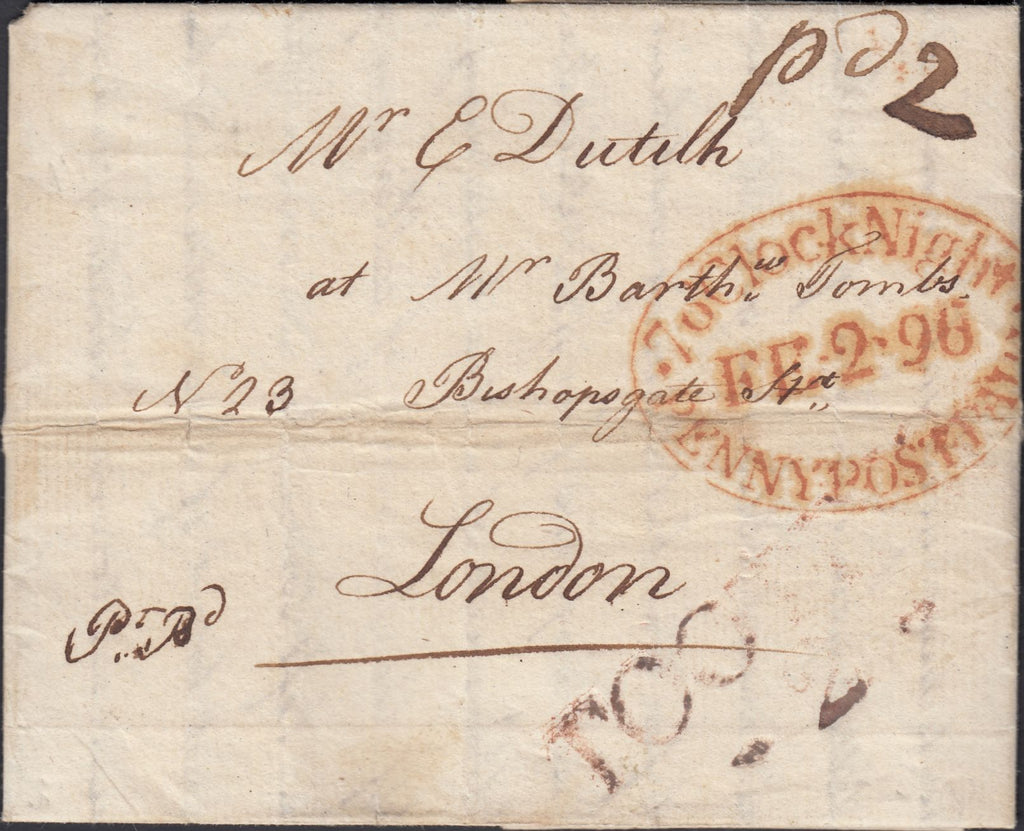 pd 2
Mr E Dutilh
at Mr Barthw Tombs
No 23 Bishopsgate Strt
London
7oClock Night
FE·2·96
PENNY POST
TOO